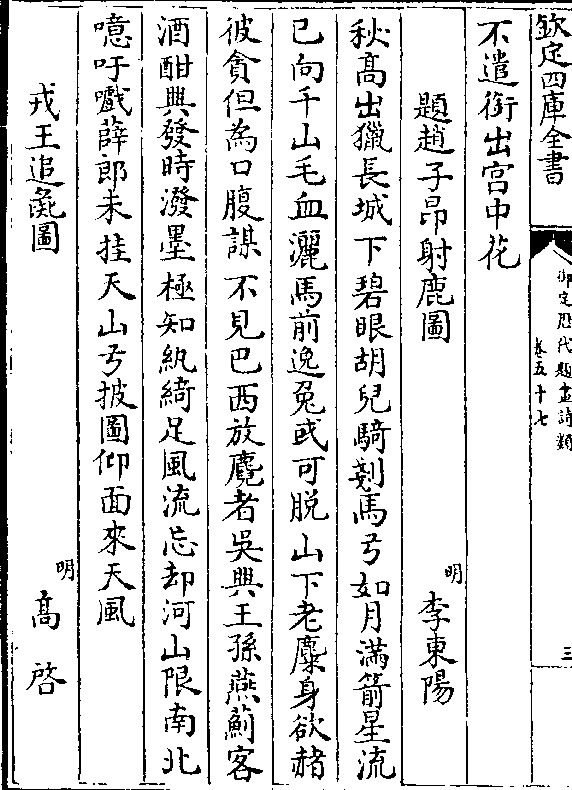 欽定四庫全書
御定歷代題畫詩類
卷五十七
三
不遣銜出宫中花
題趙子昻射鹿圖
明
李東陽
秋髙出獵長城下碧眼胡兒騎剗馬弓如月滿箭星流
已向千山毛血灑馬前逸兔或可脱山下老麋身欲赭
彼貪但為口腹謀不見巴西放麑者吳興王孫燕薊客
酒酣興發時潑墨極知紈綺足風流忘却河山限南北
噫吁嚱薛郎未挂天山弓披圖仰面來天風
戎王追彘圖
明
髙啓